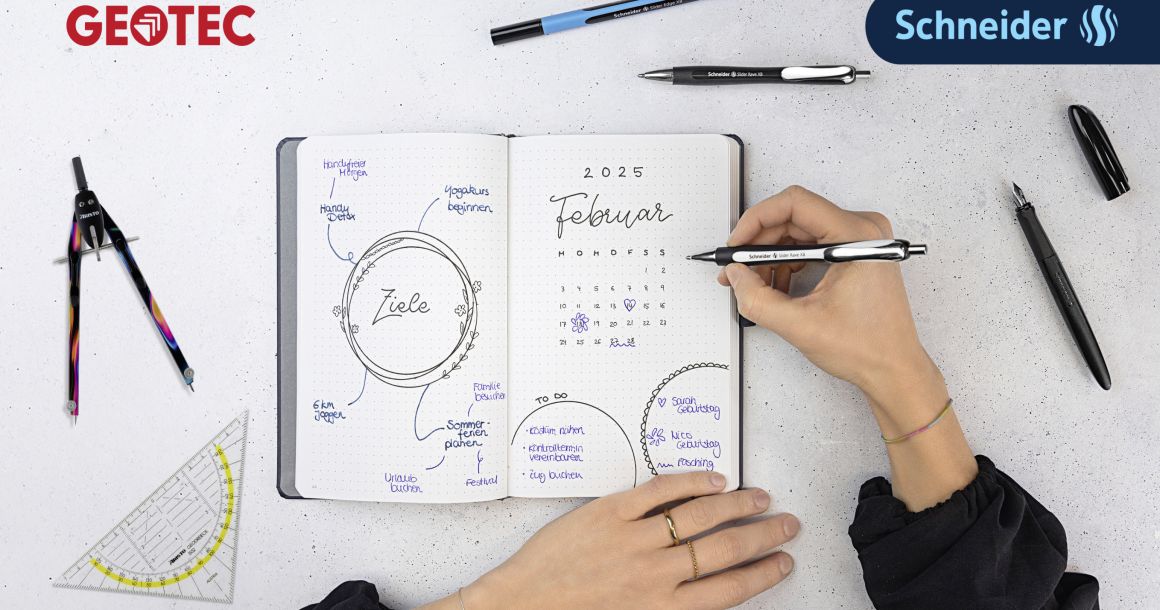 GEOTEC
Schneider
Schneider Slider Edge XB
Schneider Slider Rave XB
Handyfreier
Morgen
Handy
Detox
Yogakurs
beginnen
Ziele
6 km
joggen
Familie
besuchen
Sommer-
ferien
planen
Urlaub
buchen
Festival
2025
Februar
M D M D F S S
1 2
3 4 5 6 7 8 9
10 11 12 13 14 15 16
17 18 19 20 21 22 23
24 25 26 27 28
Schneider Slider Rave XB
TO DO
· Kostüm nähen
· Kontrolltermin
vereinbaren
· Zug buchen
Sarah
Geburtstag
Nico
Geburtstag
Fasching